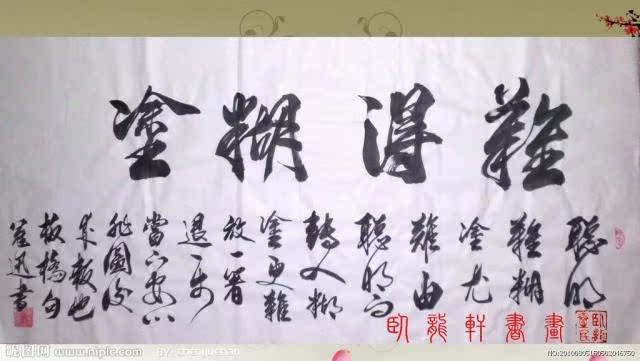 難得糊塗
聰明
難糊
塗尤
難由
聰明而
轉入糊
塗更難
放一著
退一步
當下安心
非圖後
來報也
板橋句
迅書
臥龍軒書畫
昵图网
www.nipic.com